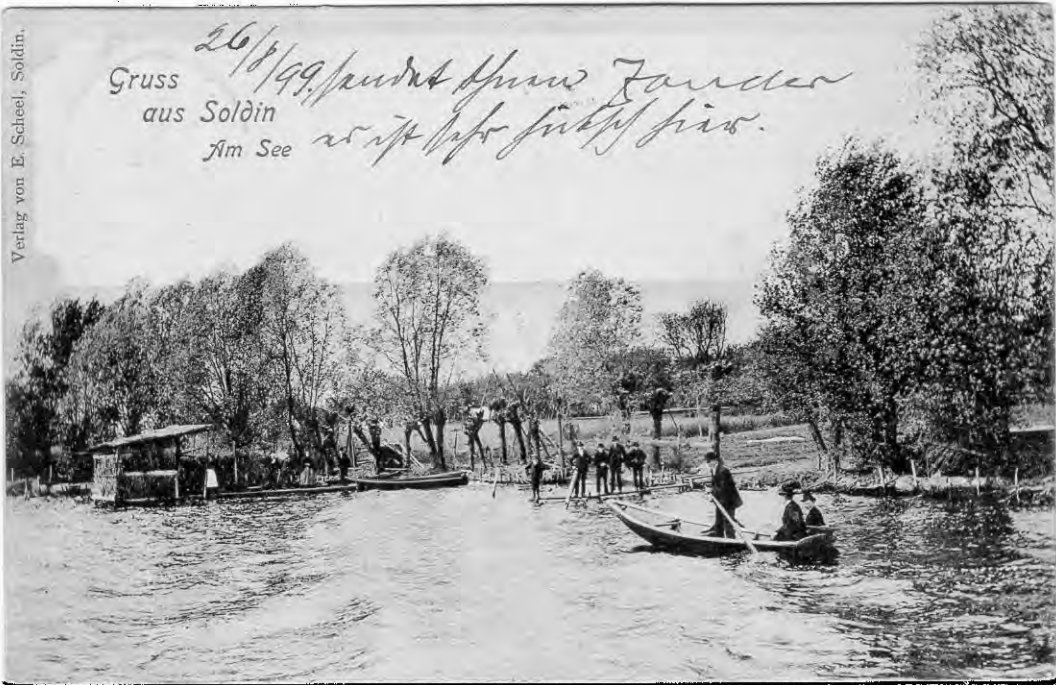 Verlag von E. Scheel, Soldin.
Gruss
aus Soldin
Am See
26/8/99. sendet Ihnen Zander
es ist sehr hübsch hier.